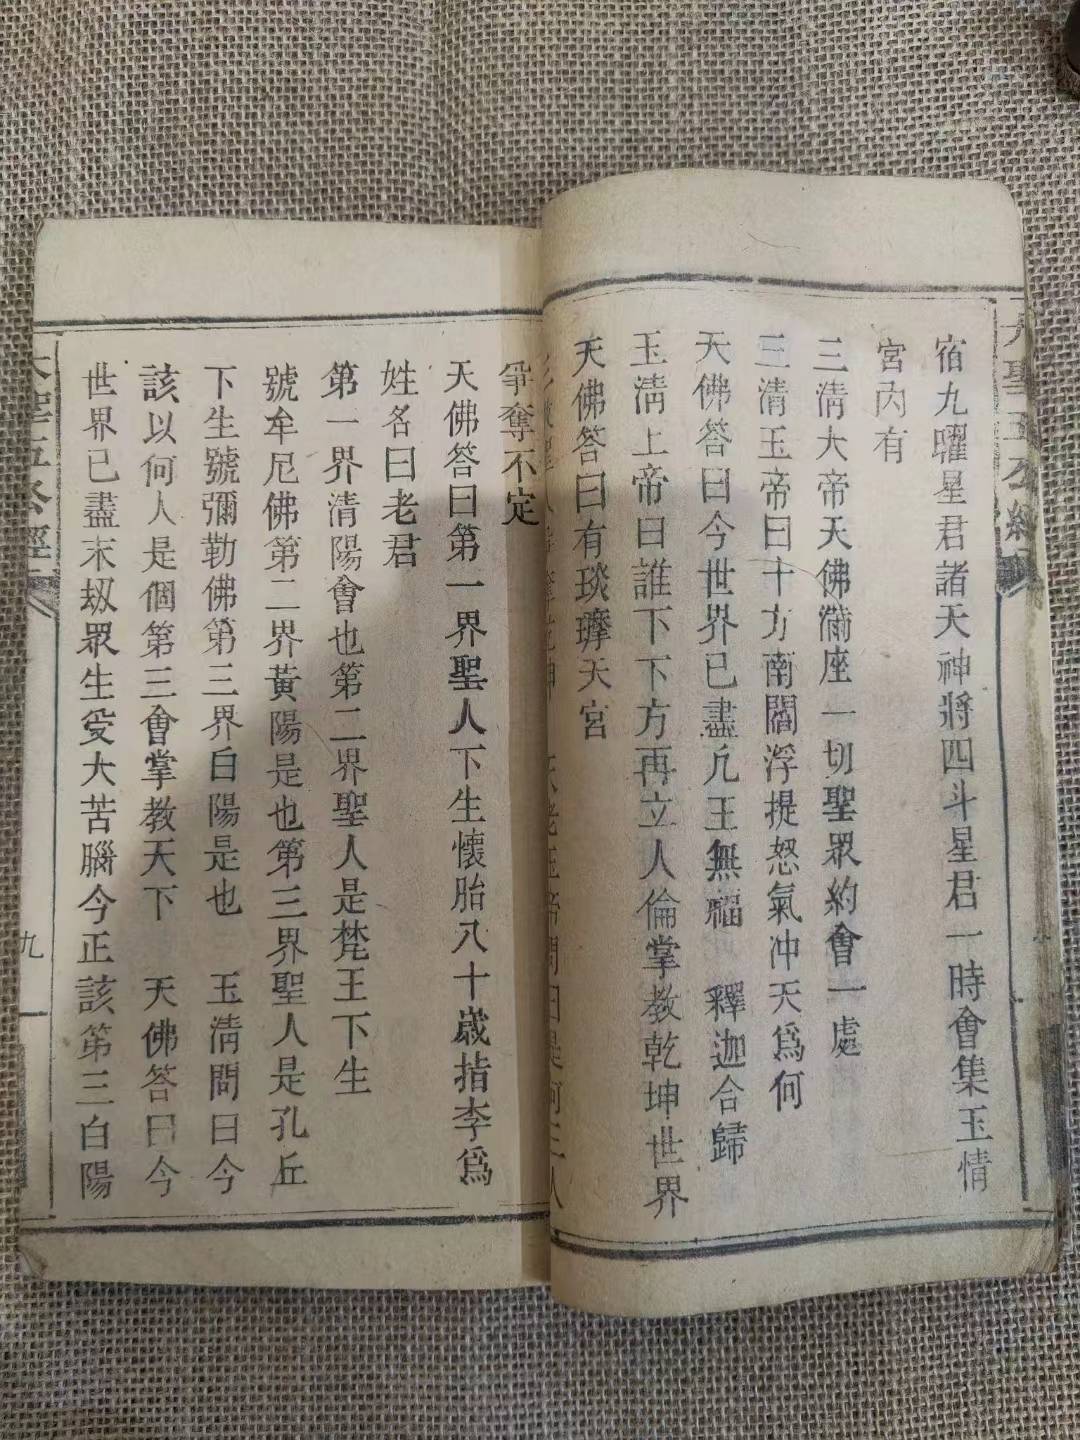 大聖五公經
宿九曜星君諸天神將四斗星君一時會集玉情
宮內有
三清大帝天佛滿座一切聖眾約會一處
三清玉帝曰十方南閻浮提怒氣冲天爲何
天佛答曰今世界已盡凡王無福 釋迦合歸
玉清上帝曰誰下下方再立人倫掌教乾坤世界
天佛答曰有琰㻴天宮
聖人 乾坤 玉帝問曰是何三人
爭奪不定
天佛答曰第一界聖人下生懷胎八十歲指李爲
姓名曰老君
第一界清陽會也第二界聖人是梵王下生
號牟尼佛第二界黃陽是也第三界聖人是孔丘
下生號彌勒佛第三界白陽是也 玉清問曰今
該以何人是個第三會掌教天下 天佛答曰今
世界已盡末刼眾生受大苦腦今正該第三白陽
大聖五公經
九 一